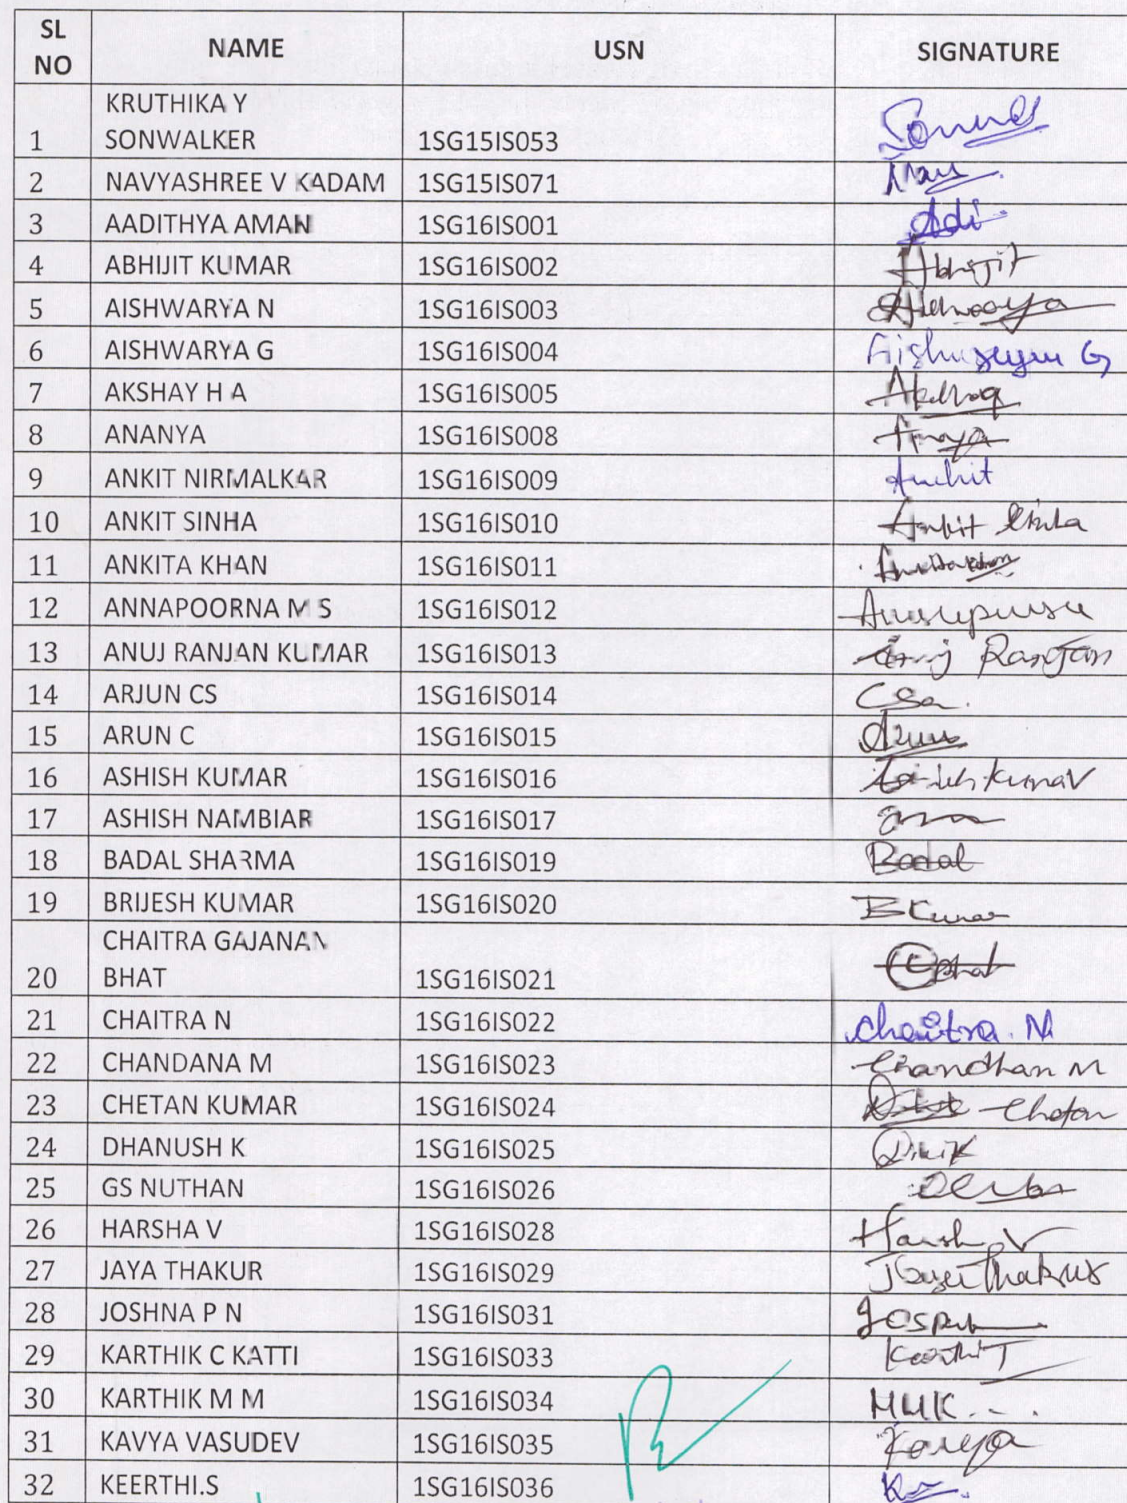 SL NO NAME USN SIGNATURE
KRUTHIKA Y
1 SONWALKER 1SG15IS053
2 NAVYASHREE V KADAM 1SG15IS071
3 AADITHYA AMAN 1SG16IS001 Adi
4 ABHIJIT KUMAR 1SG16IS002 Abhijit
5 AISHWARYA N 1SG16IS003
6 AISHWARYA G 1SG16IS004
7 AKSHAY H A 1SG16IS005
8 ANANYA 1SG16IS008
9 ANKIT NIRMALKAR 1SG16IS009
10 ANKIT SINHA 1SG16IS010 Ankit
11 ANKITA KHAN 1SG16IS011
12 ANNAPOORNA M S 1SG16IS012
13 ANUJ RANJAN KUMAR 1SG16IS013 Ranjan
14 ARJUN CS 1SG16IS014
15 ARUN C 1SG16IS015
16 ASHISH KUMAR 1SG16IS016 Kumar
17 ASHISH NAMBIAR 1SG16IS017
18 BADAL SHARMA 1SG16IS019 Badal
19 BRIJESH KUMAR 1SG16IS020 BKumar
CHAITRA GAJANAN
20 BHAT 1SG16IS021
21 CHAITRA N 1SG16IS022 Chaitra. N
22 CHANDANA M 1SG16IS023 Chandhan M
23 CHETAN KUMAR 1SG16IS024 Chetan
24 DHANUSH K 1SG16IS025
25 GS NUTHAN 1SG16IS026
26 HARSHA V 1SG16IS028 Harsh V
27 JAYA THAKUR 1SG16IS029
28 JOSHNA P N 1SG16IS031
29 KARTHIK C KATTI 1SG16IS033
30 KARTHIK M M 1SG16IS034 MMK...
31 KAVYA VASUDEV 1SG16IS035
32 KEERTHI.S 1SG16IS036